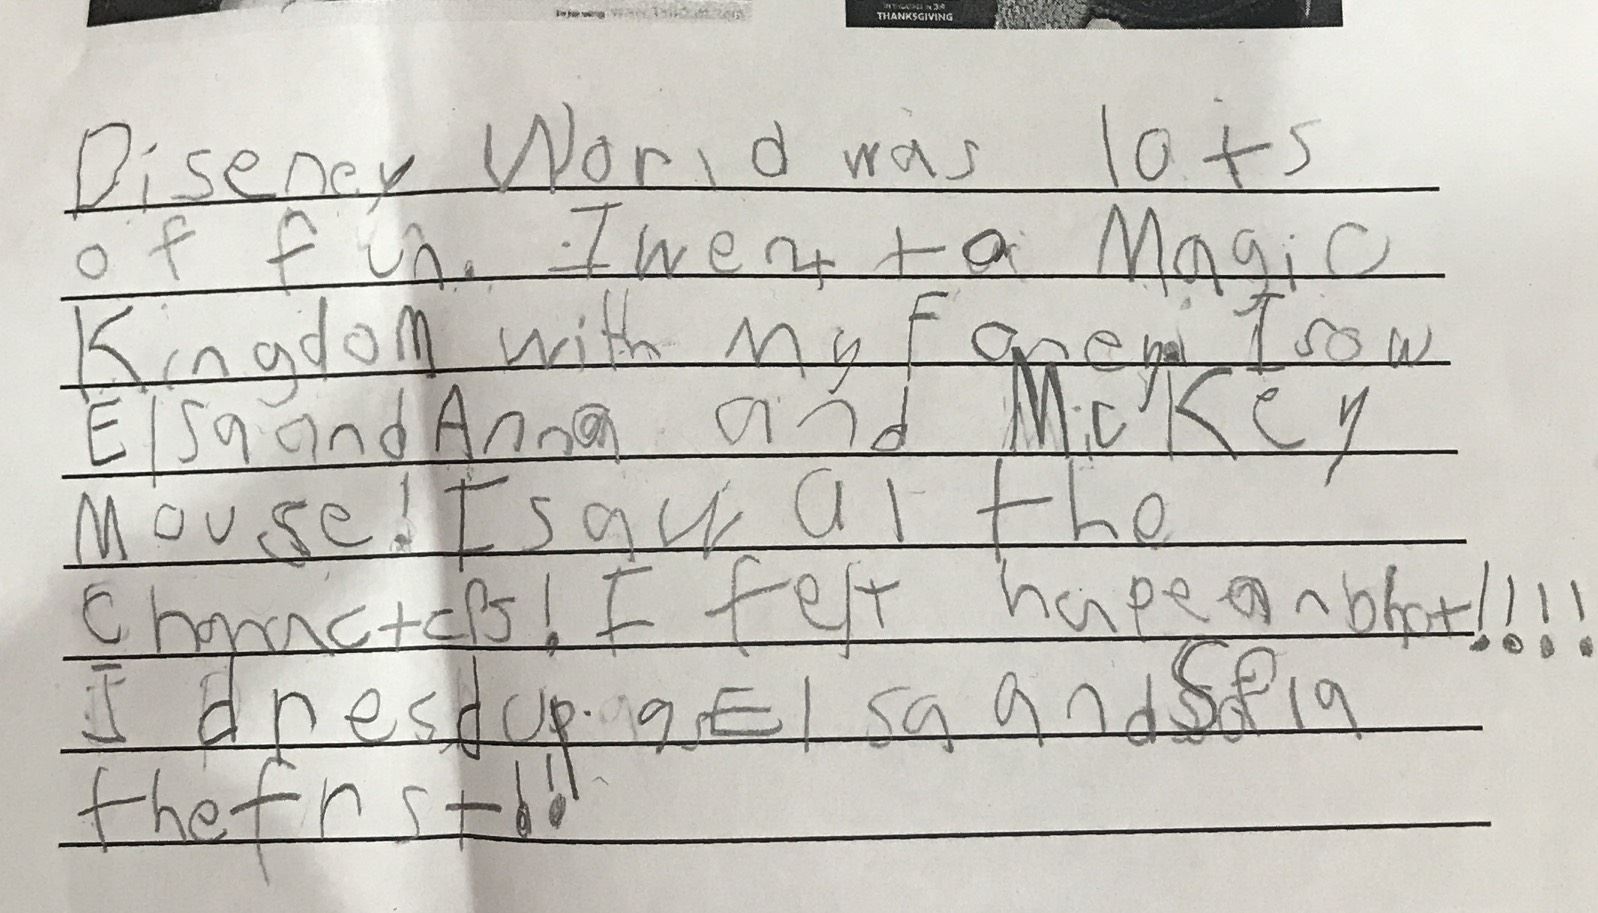 THANKSGIVING
Diseney World was lots
of fun. I went to Magic
Kingdom with my Famey. I sow
Elsa and Anna and Mickey
Mouse! I saw al the
Characters! I felt hape anbhot!!!!
I dresd up as Elsa and Sofia
the frst!!